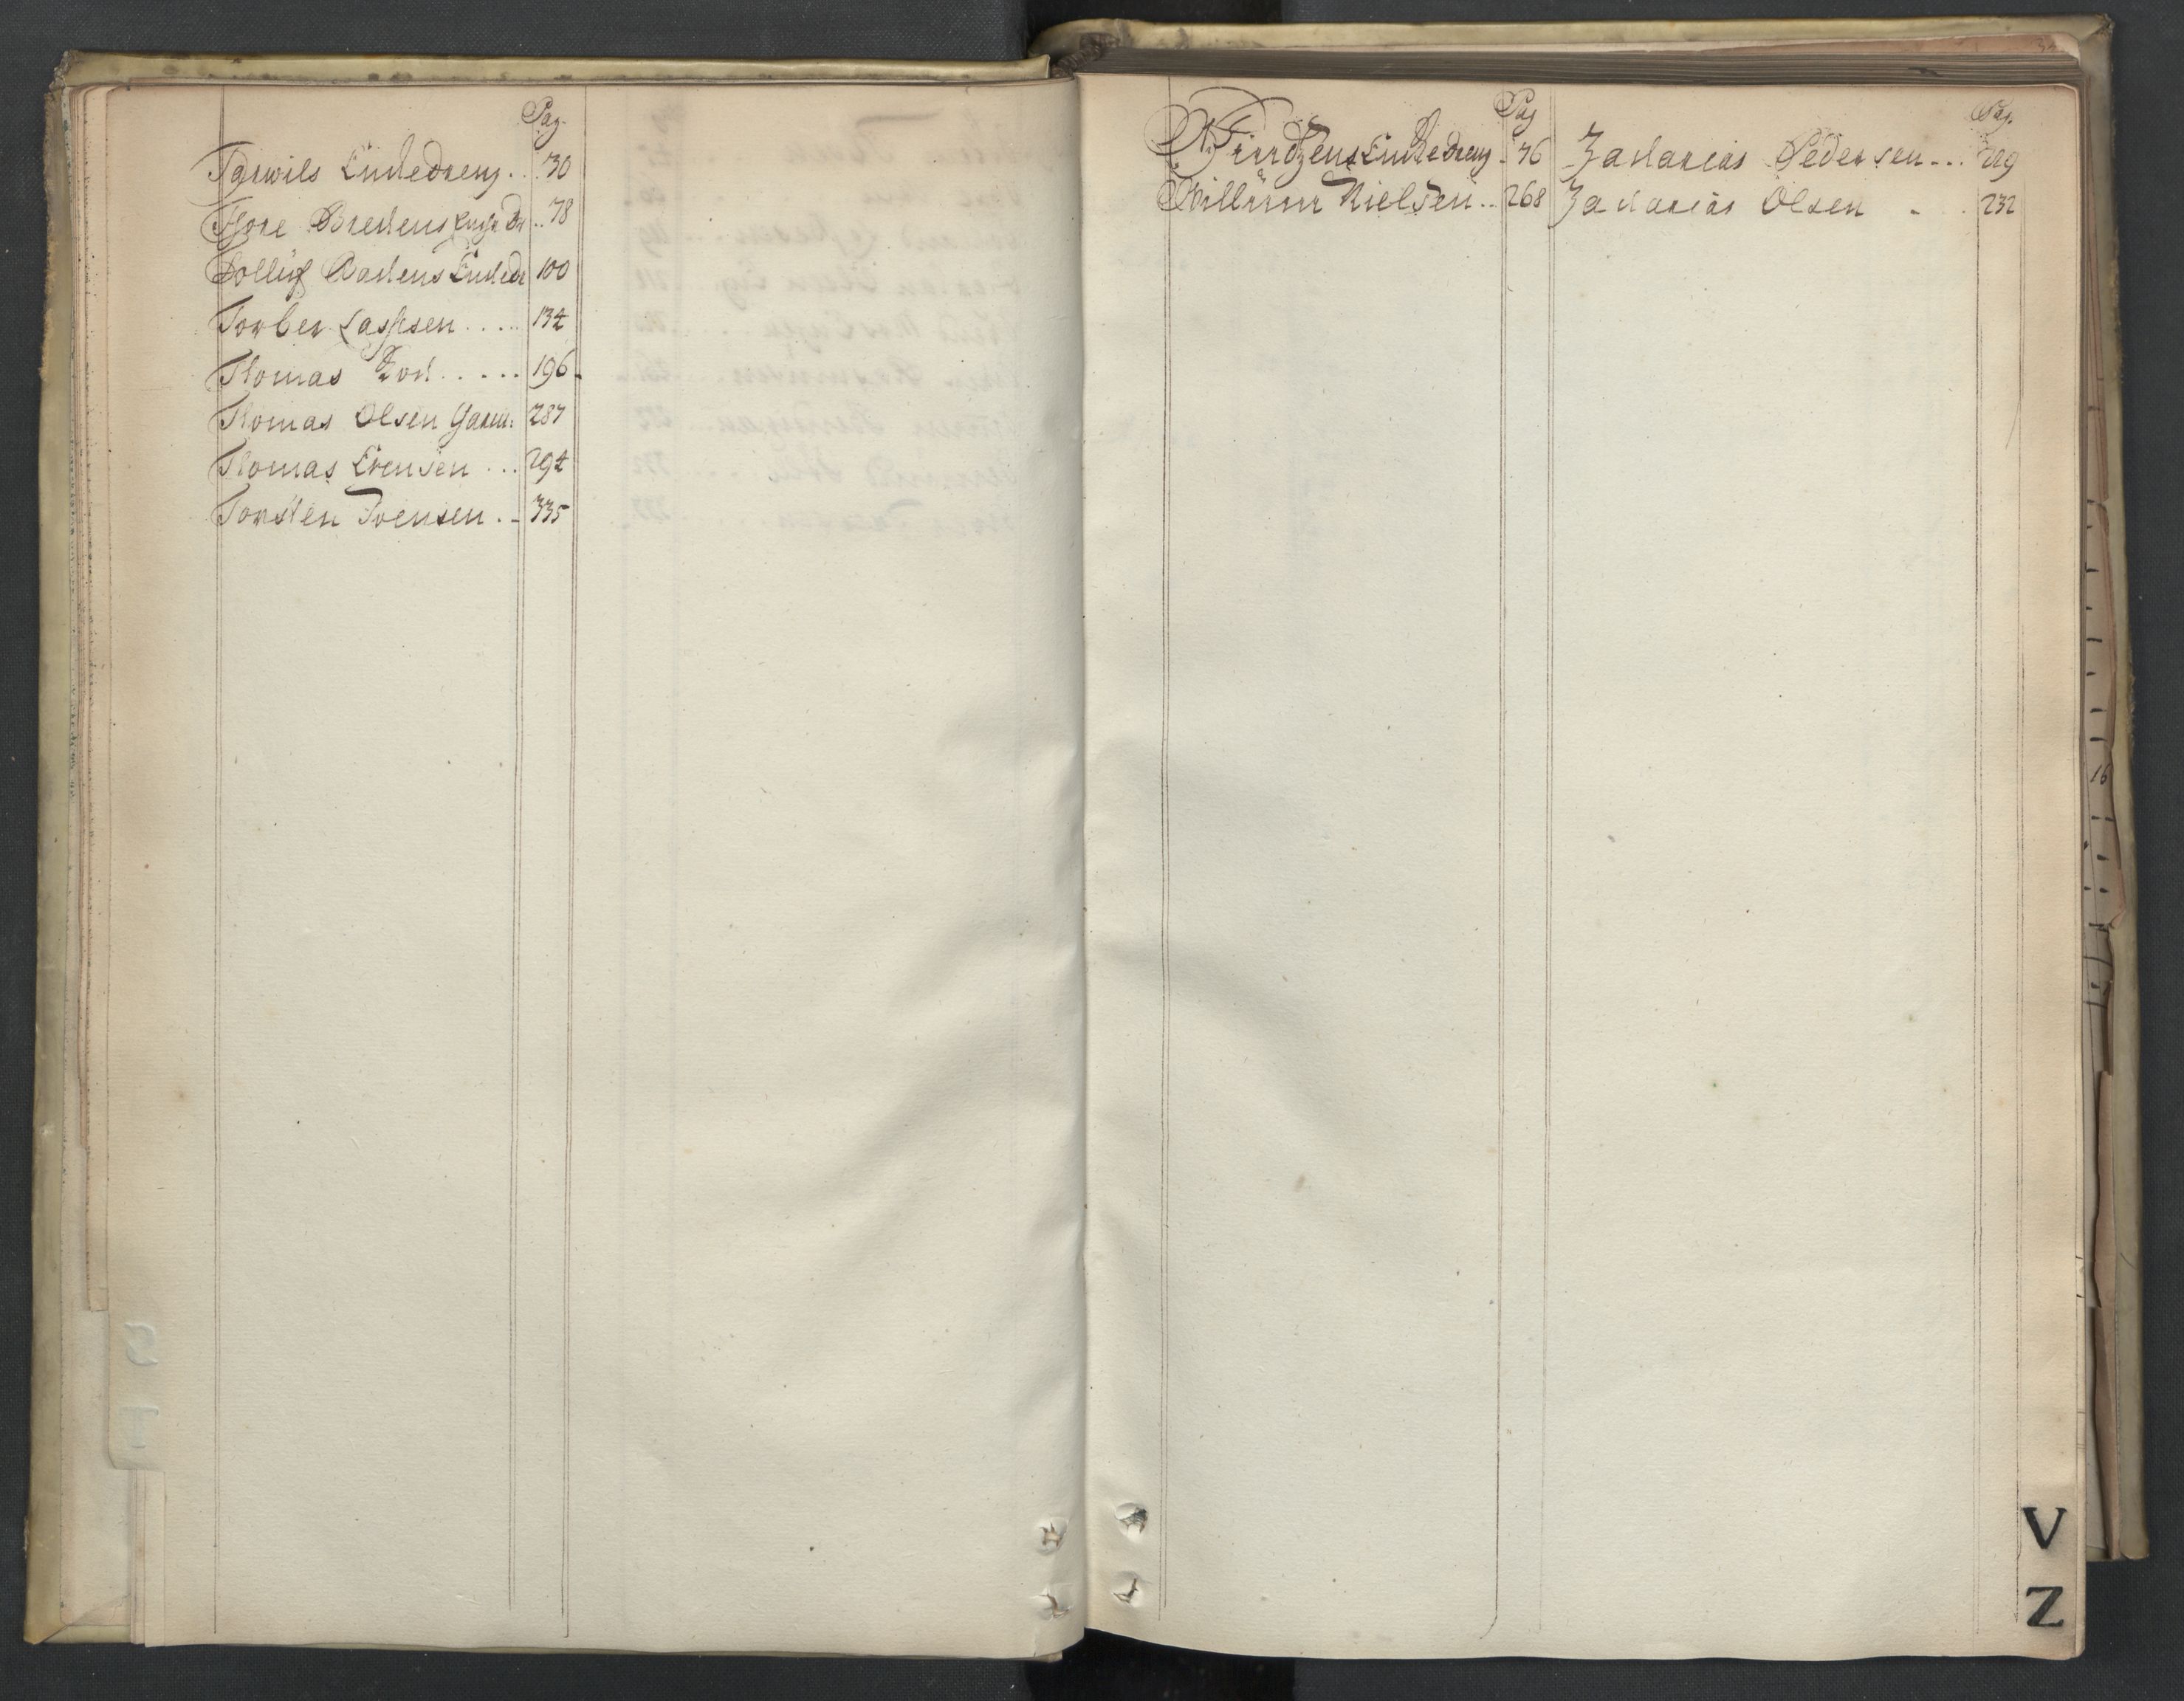 Pag.
Tarvils Enckedreng . . 30
Tore Bredens Encke Dr . . 78
Tolluf Bachens Enckedr 100
Torber Lassesen . . . . . 134
Thomas Koch . . . . . 196.
Thomas Olsen Garm: 287
Thomas Evensen . . . 294
Torsten Svensen . - 335
Pag
Enckedreng . 76
Willum Nielsen . . 268
Pag.
Zacharias Pedersen . . . 229
Zacharias Olsen - . 232
V
Z